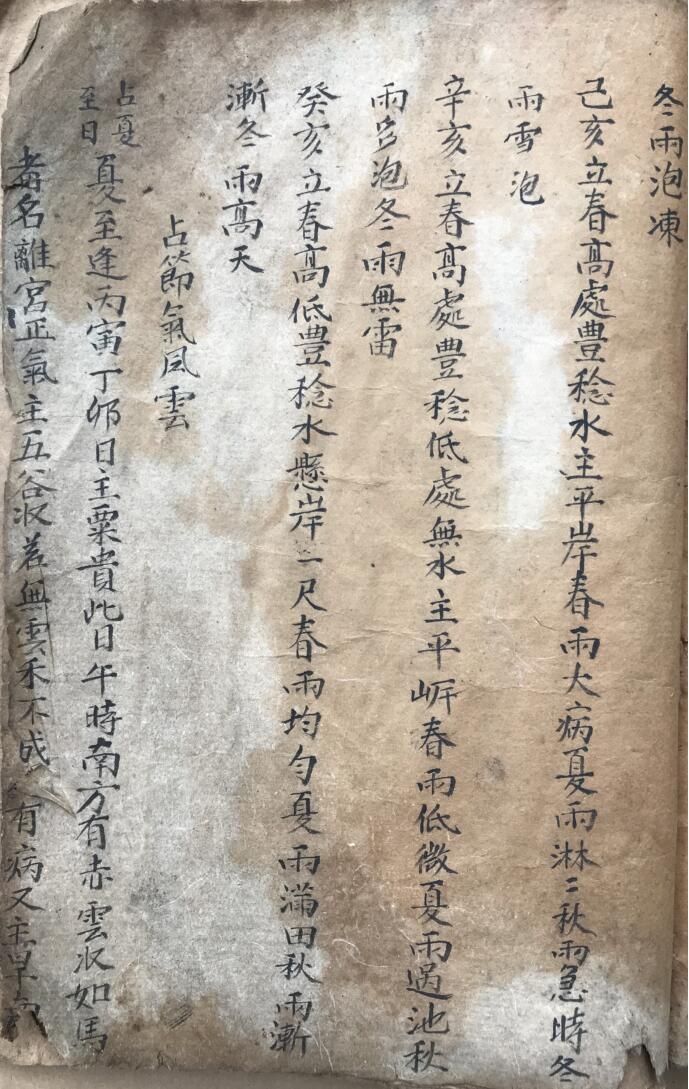 冬雨泡凍
己亥立春髙處豊稔水主平岸春雨大病夏雨淋〻秋雨急時冬
雨雪泡
辛亥立春髙處豊稔低處無水主平岸春雨低微夏雨過池秋
雨泡冬雨無雷
癸亥立春髙低豊稔水懸岸一尺春雨均匀夏雨滿田秋雨漸
漸冬雨髙天
占節氣風雲
占夏
至日
夏至逢丙寅丁卯日主粟貴此日午時南方有赤雲狀如馬
者名離宮正氣主五谷收若無雲禾不成有病又主旱